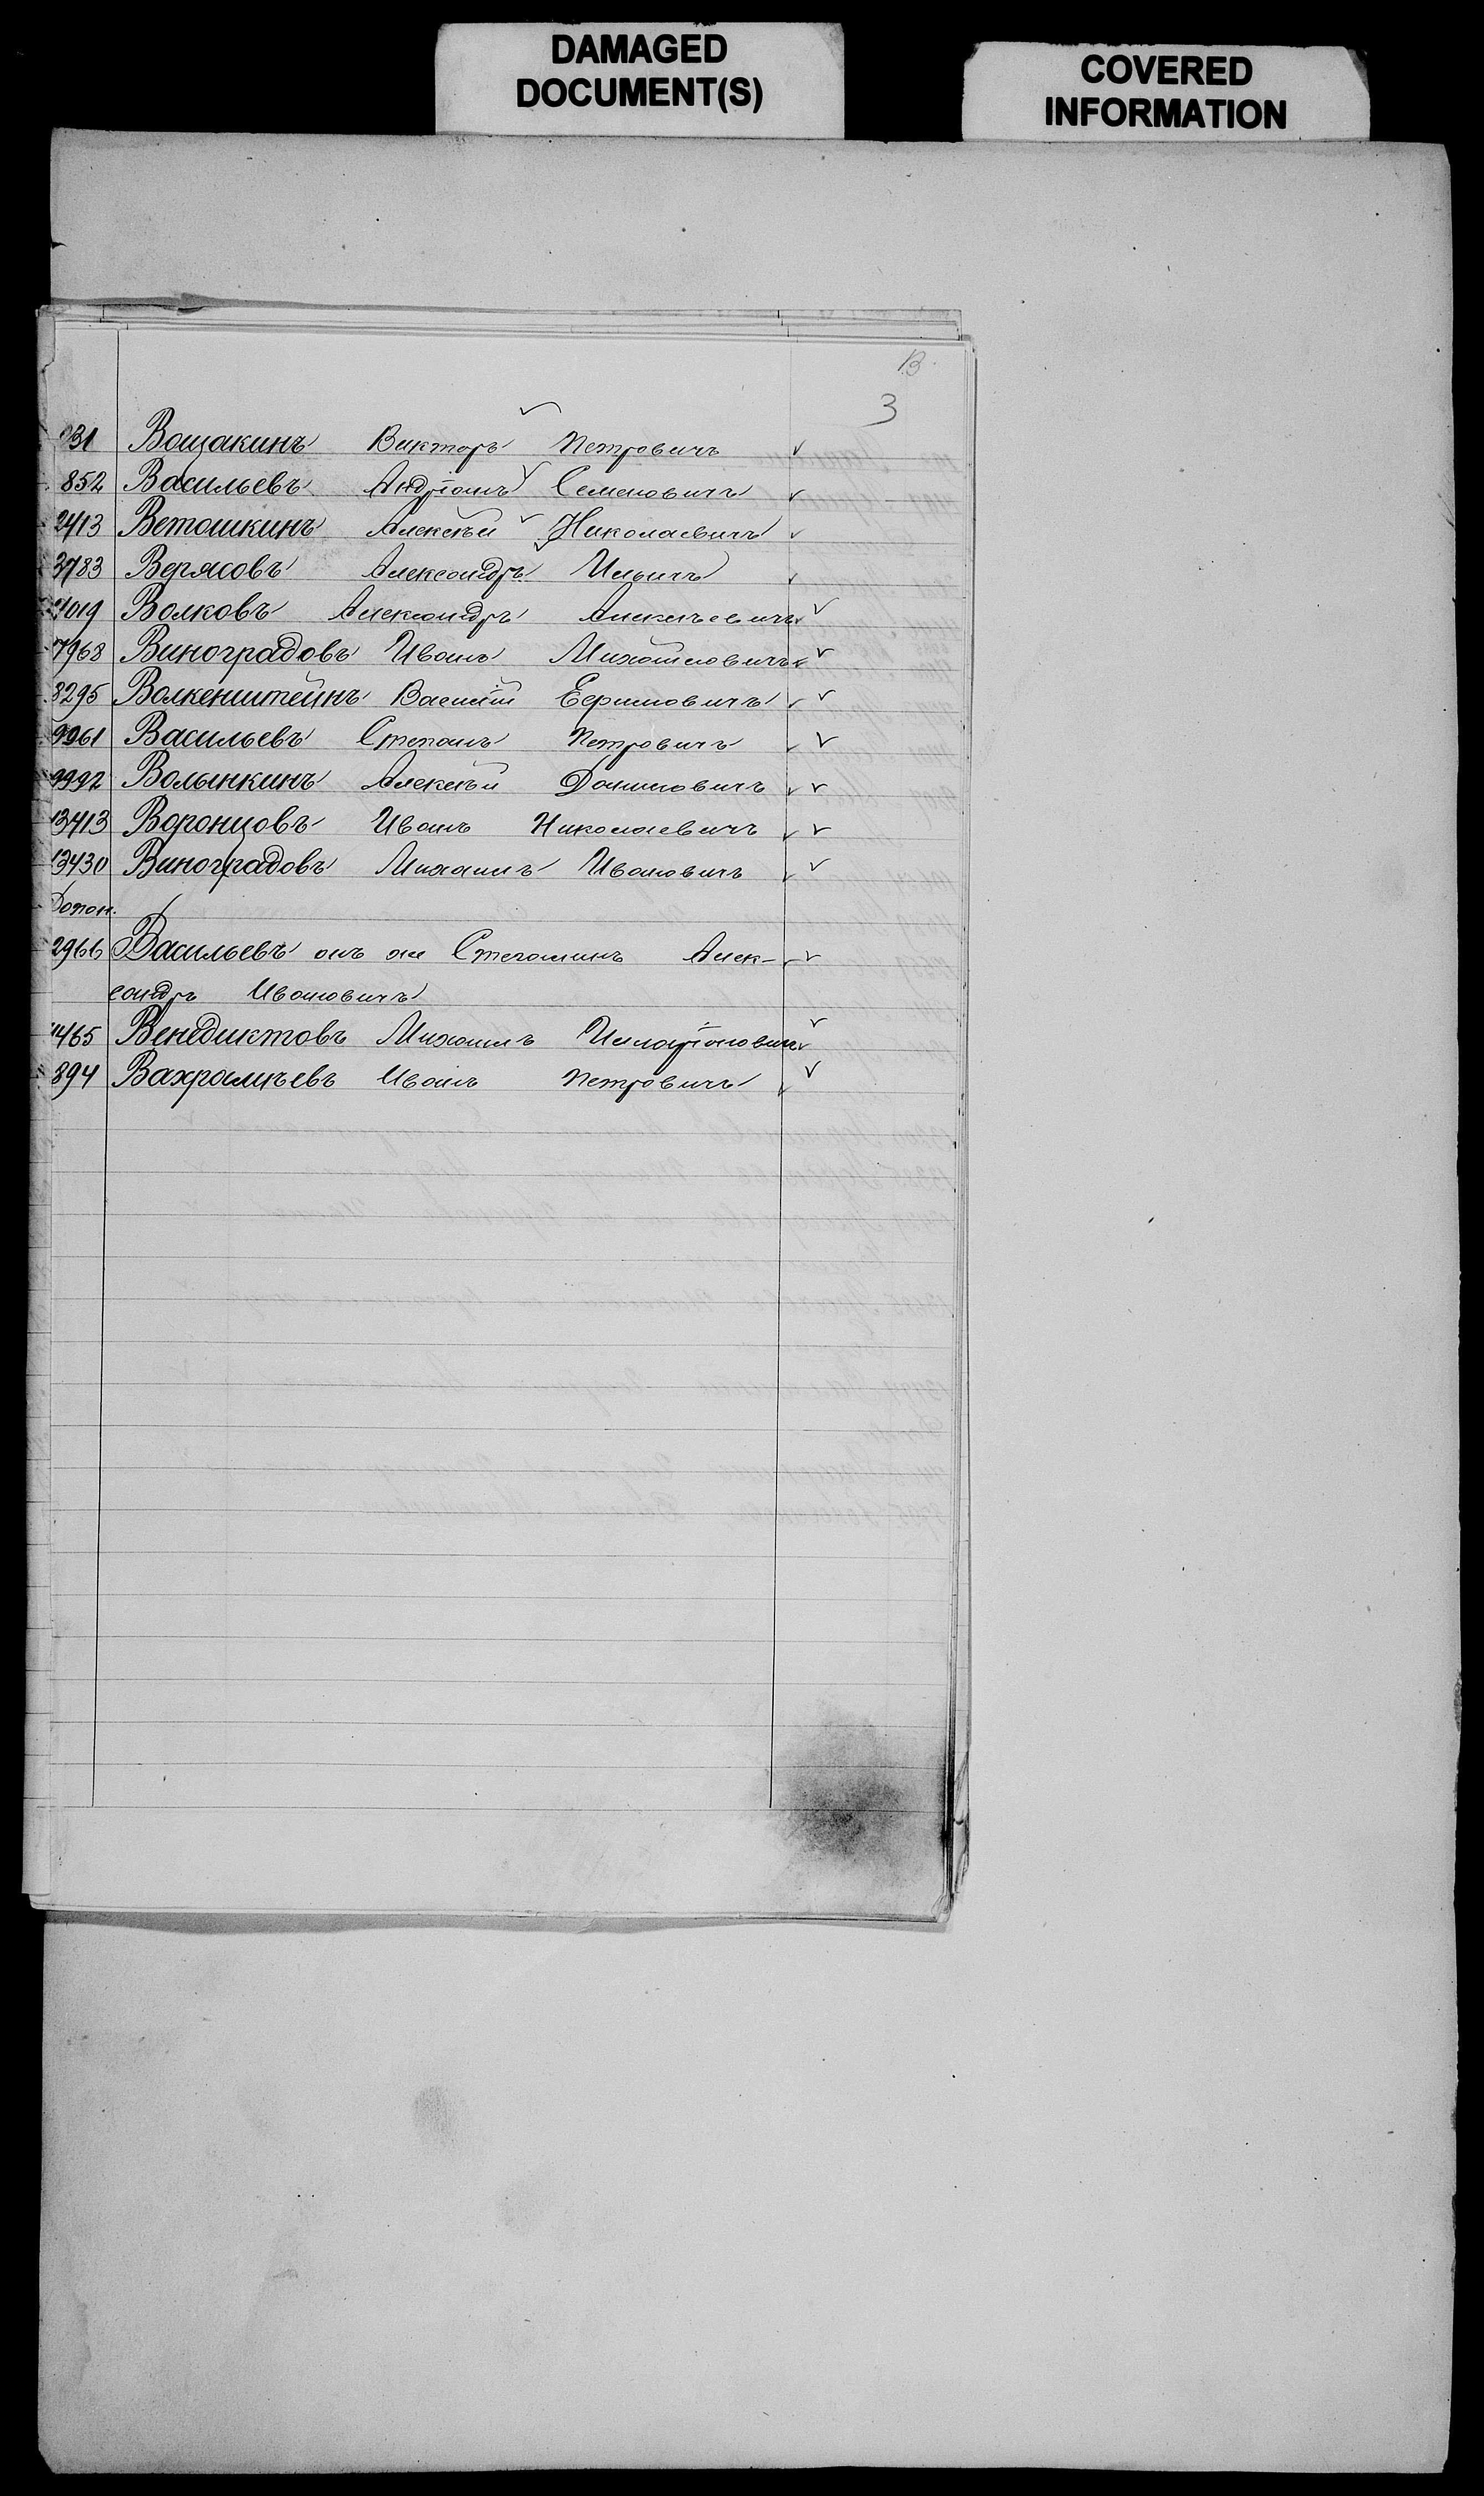 DAMAGED
DOCUMENT(S)
COVERED
INFORMATION
В.
3
931 Вощакинъ Викторъ Петровичъ
852 Васильевъ Андріанъ Семеновичъ
2413 Ветошкинъ Алексѣй Николаевичъ
3783 Верясовъ Александръ Ильичъ
7019 Волковъ Александръ Алексѣевичъ
7968 Виноградовъ Иванъ Михайловичъ
8295 Волкенштейнъ Василій Ефимовичъ
9961 Васильевъ Степанъ Петровичъ
9992 Волынкинъ Алексѣй Даниловичъ
13413 Воронцовъ Иванъ Николаевичъ
13430 Виноградовъ Михаилъ Ивановичъ
Допол.
2966 Васильевъ онъ же Алек-
сандръ Ивановичъ
465 Венедиктовъ Михаилъ Иларіонович
894 Вахрамѣевъ Иванъ Петровичъ